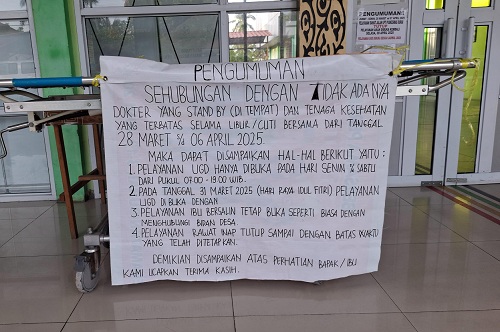 PENGUMUMAN
PENGUMUMAN
SEHUBUNGAN DENGAN TIDAK ADANYA
DOKTER YANG STAND BY (DI TEMPAT) DAN TENAGA KESEHATAN
YANG TERBATAS SELAMA LIBUR/CUTI BERSAMA DARI TANGGAL
28 MARET s/d 06 APRIL 2025.
MAKA DAPAT DISAMPAIKAN HAL-HAL BERIKUT YAITU :
1. PELAYANAN UGD HANYA DIBUKA PADA HARI SENIN s/d SABTU
DARI PUKUL 07.00 - 18.00 WIB.
2. PADA TANGGAL 31 MARET 2025 (HARI RAYA IDUL FITRI) PELAYANAN
UGD DI BUKA DENGAN
3. PELAYANAN IBU BERSALIN TETAP BUKA SEPERTI BIASA DENGAN
MENGHUBUNGI BIDAN DESA
4. PELAYANAN RAWAT INAP TUTUP SAMPAI DENGAN BATAS WAKTU
YANG TELAH DITETAPKAN.
DEMIKIAN DISAMPAIKAN ATAS PERHATIAN BAPAK / IBU
KAMI UCAPKAN TERIMA KASIH.